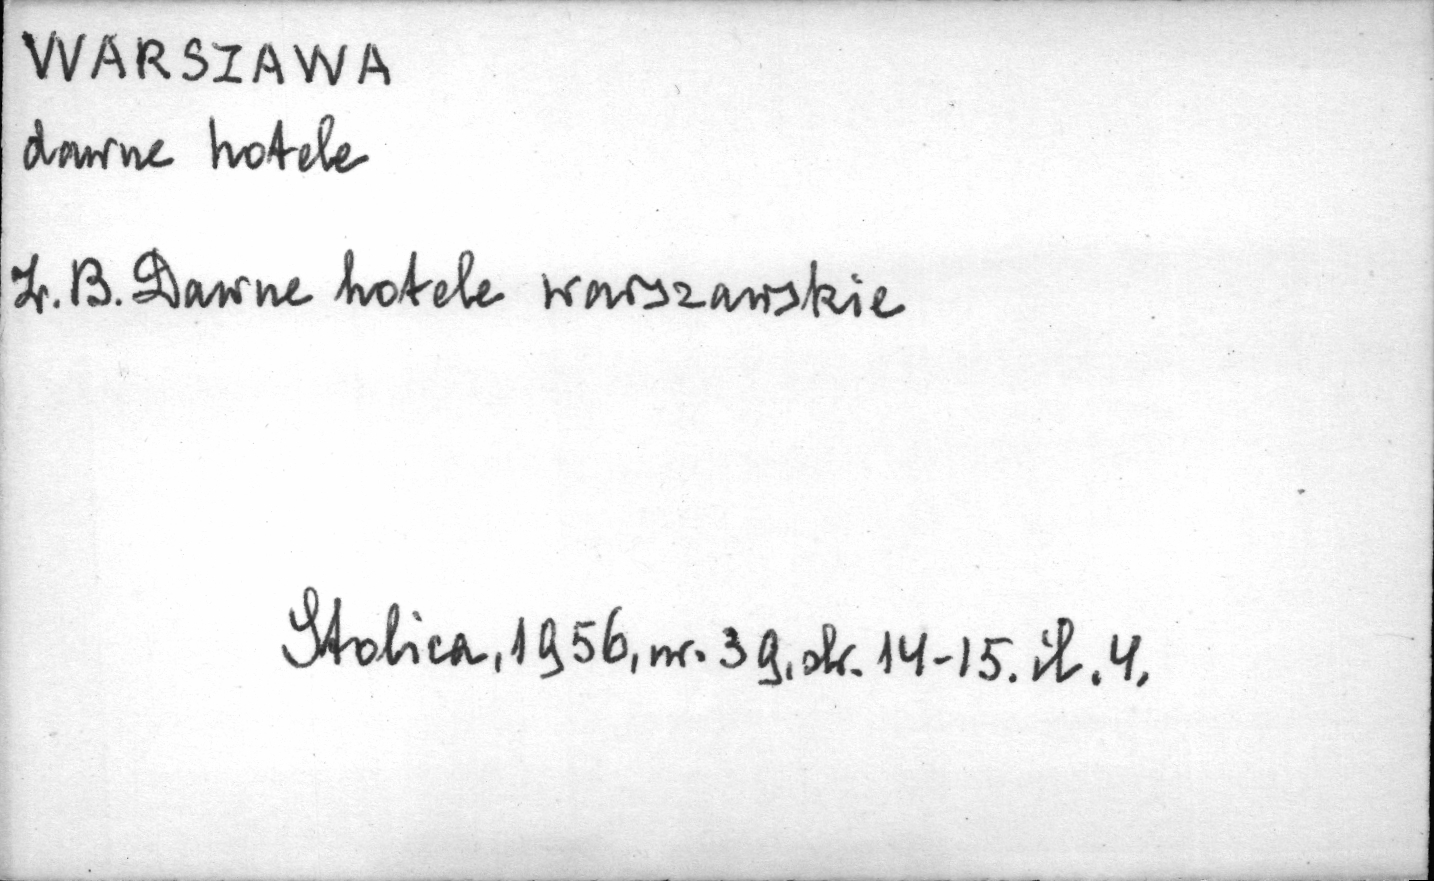 WARSZAWA
dawne hotele
Z. B. Dawne hotele warszawskie
Stolica, 1956, nr. 39, str. 14-15. il. 4.